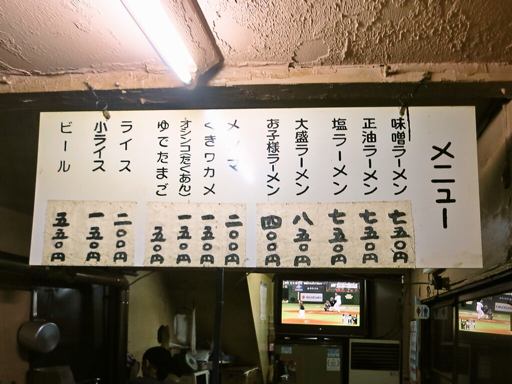 メニュー
味噌ラーメン 七五〇円
正油ラーメン 七五〇円
塩ラーメン 七五〇円
大盛ラーメン 八五〇円
お子様ラーメン 四〇〇円
メンマ 二〇〇円
くきワカメ 一五〇円
オシンコ(たくあん) 一五〇円
ゆでたまご 五〇円
ライス 二〇〇円
小ライス 一五〇円
ビール 五五〇円